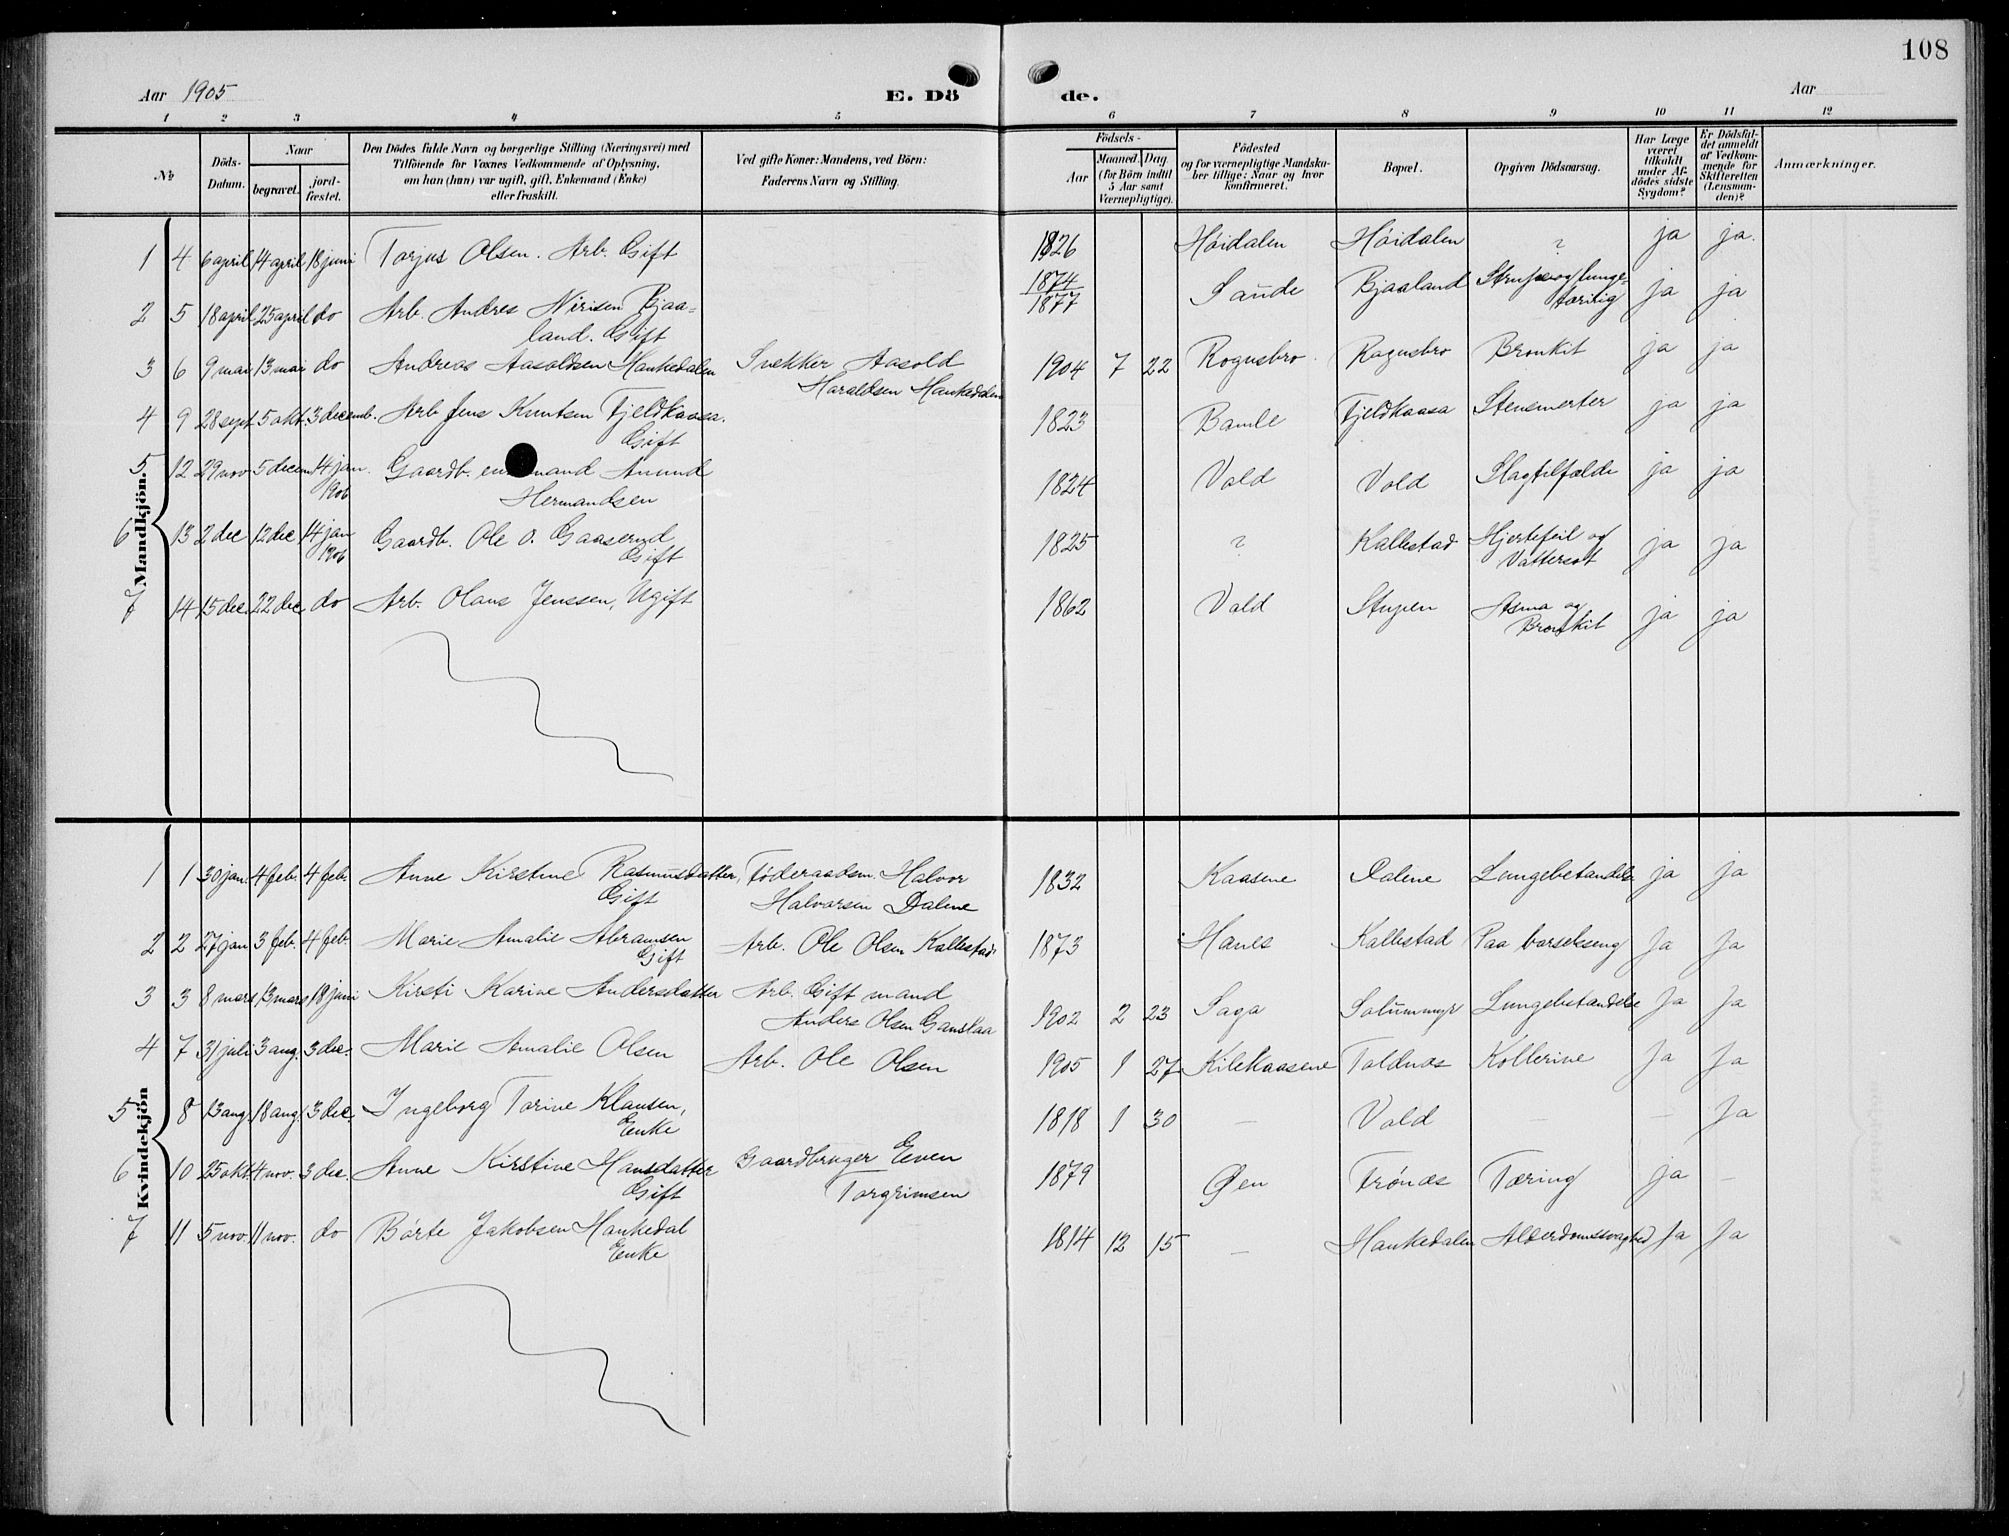 108
Aar 1905
E. Dö de.
Aar
1 2 3 4 5 6 7 8 9 10 11 12
№
Döds-Datum.
Naar
begravet.
jord-fæstet.
Den Dödes fulde Navn og borgerlige Stilling (Næringsvei) med
Tilföiende for Voxnes Vedkommende af Oplysning,
om han (hun) var ugift, gift, Enkemand (Enke)
eller fraskilt.
Ved gifte Koner: Mandens, ved Börn:
Faderens Navn og Stilling.
Födsels-
Aar
Maaned. Dag
(for Börn indtil
5 Aar samt
Værnepligtige).
Födested
og for værnepligtige Mandska-
ber tillige: Naar og hvor
konfirmeret.
Bopæl.
Opgiven Dödsaarsag.
Har Læge
været
tilkaldt
under Af-
dödes sidste
Sygdom?
Er Dödsfal-
det anmeldt
af Vedkom-
mende for
Skifteretten
(Lensman-
den)?
Anmærkninger.
Mandkjön.
1 4 6 april 14 april 18 juni Torjus Olsen. Arb. Gift 1826 Höidalen Höidalen ? ja ja.
2 5 18 april 25 april do Arb. Andres Nirisen Bjaa=
land. Gift 1874
1877 Saude Bjaaland Strube og lunge-
tæring ja ja
3 6 9 mai 13 mai do Andreas Aasoldsen Hankedalen Snekker Aasold
Haraldsen Hankedalen 1904 7 22 Rognsbro Rognsbro Bronkit ja ja
4 9 28 sept 5 okt. 3 decemb. Arb Jens Knutsen Fjeldkaasa.
Gift 1823 Bamle Fjeldkaasa Stensmerter ja ja
5. 12 29 nov 5 decem 14 jan.
1906 Gaardb. mand Anund
Hermandsen 1824 Vold Vold Slagtilfælde ja ja
6 13 2 dec 12 dec 14 jan
1906 Gaardb. Ole O. Gaaserud
Gift 1825 ? Kallestad Hjertefeil og
Vattersot ja ja
7 14 15 dec. 22 dec do Arb. Olaus Jenssen, Ugift 1862 Vold Stupen Asma og
Bronkit ja ja
Kvindekjön
1 1 30 jan. 4 feb. 4 feb. Anne Kirstine Rasmusdatter,
Gift Föderaadsm. Halvor
Halvorsen Dalene 1832 Kaasene Dalene Lungebetændelse ja ja
2 2 27 jan 3 feb. 4 feb. Marie Amalie Abramsen
Gift Arb. Ole Olsen Kallestad. 1873 Hanes Kallestad Paa barselseng Ja Ja
3 3 8 mars 13 mars 18 juni Kirsti Karine Andersdatter Arb. Gift mand
Anders Olsen 1902 2 23 Saga Solummyr Lungebetændelse Ja Ja
4 7 31 juli 3 aug. 3 dec. Marie Amalie Olsen Arb. Ole Olsen 1905 1 27 Kilekaasene Toldnæs Kollerine Ja Ja
5 8 13 aug. 18 aug. 3 dec. Ingeborg Torine Klausen,
Enke 1818 1 30 — Vold — — Ja
6 10 25 okt. 4 nov. 3 dec. Anne Kirstine Hansdatter
Gift Gaardbruger Even
Torgrimsen 1879 Øen Trönæs Tæring ja —
7 11 5 nov. 11 nov. do Börte Jakobsen Hankedal
Enke 1814 12 15 — Hankedalen Alderdomssvaghed Ja Ja